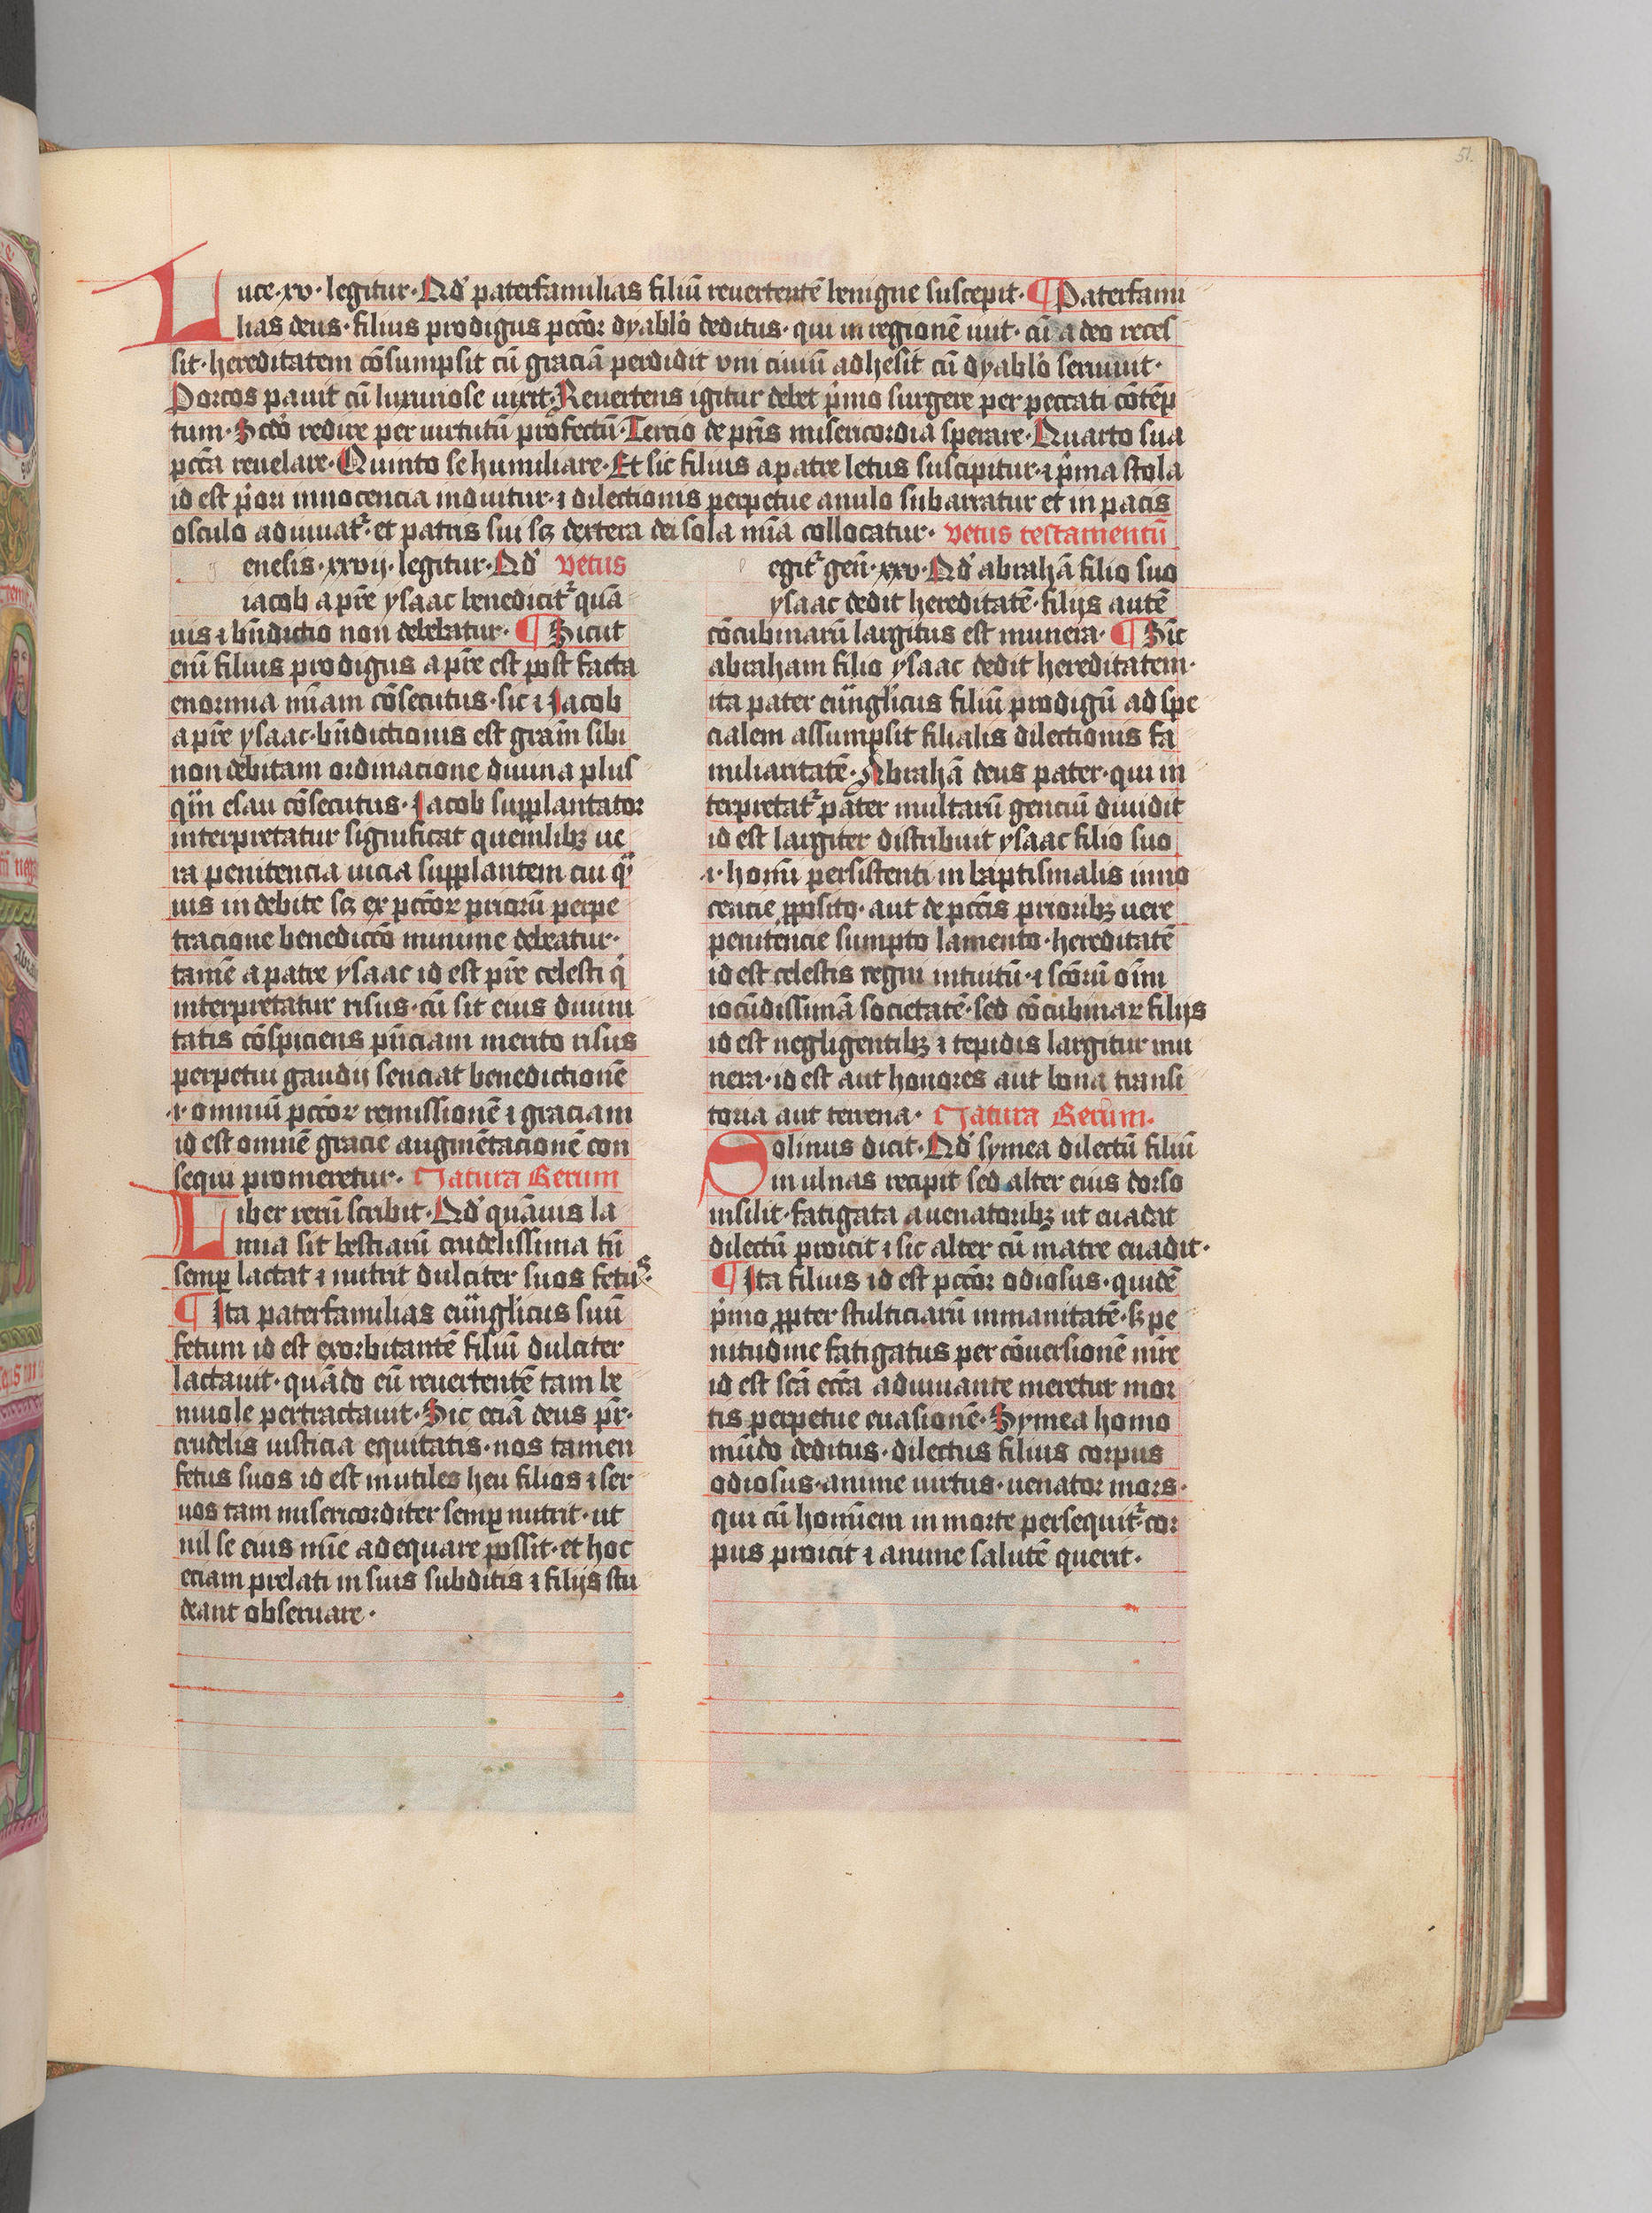 51.
Luce·xv·legitur·Qd' paterfamilias filiū reuertentē benigne suscepit· ¶ Paterfami
lias deus·filius prodigus pccō2 dyablo deditus·qui in regionē iuit·cū a deo reces
sit·hereditatem cōsumpsit cū graciā perdidit vni ciuiū adhesit cū dyablo seruiuit·
Porcos pauit cū luxuriose uixit·Reuertens igitur debet p̍mo surgere per peccati cōtēp
tum·Scdo redire per uirtutū profectū·Tercio de pr̄is misericordia sperare·Quarto sua
pccā reuelare·Quinto se humiliare·Et sic filius a patre letus suscipitur·⁊ p̍ma stola
id est p̍ori innocencia induitur·⁊ dilectionis perpetue anulo subarratur et in pacis
osculo adunat᷑·et patris sui sꝫ dextera dei sola mīa collocatur· vetus testamentū
enesis·xxvij·legitur·Qd' vetus
iacob a pr̄e ysaac benedicit᷑ quā
uis ⁊ bn̄dictio non debebatur· ¶ Sicut
eni filius prodigus a pr̄e est post facta
enormia mīam cōsecutus·sic ⁊ Iacob
a pr̄e ysaac·bn̄dictionis est grām sibi
non debitam ordinacione diuina plus
qm̄ esau cōsecutus·Iacob supplantator
interpretatur significat quemlibꝫ ue
ra penitencia uicia supplantem cui qͣ
uis indebite sꝫ ex pccōꝝ priorū perpe
tracione benediccō minime debeatur·
tamē a patre ysaac id est pr̄e celesti q̍
interpretatur risus·cū sit eius diuini
tatis cōspiciens pn̄ciam merito risus
perpetui gaudij senciat benedictionē
·i·omniū pccōꝝ remissionē ⁊ graciam
id est omnē gracie augmētacionē con
sequi promeretur· Natura Rerum
Liber rerū scribit·Qd' quāuis la
mia sit bestiarū crudelissima tn̄
semꝑ lactat ⁊ nutrit dulciter suos fetus·
¶ Ita paterfamilias euāngͤlicus suū
fetum id est exorbitantē filiū dulciter
lactauit·quādo eū reuertentē tam be
niuole pertractauit·Sic eciā deus pr̄·
crudelis iusticia equitatis·nos tamen
fetus suos id est inutiles heu filios ⁊ ser
uos tam misericorditer semꝑ nutrit·ut
nil se eius mīe adequare possit·et hoc
eciam prelati in suis subditis ⁊ filijs stu
deant obseruare·
egit᷑ gen̄·xxv·Qd' abrahā filio suo
ysaac dedit hereditatē·filijs autē
cōcubinarū largitus est munera· ¶ Sic
abraham filio ysaac dedit hereditatem·
ita pater euāngͤlicus filiū prodigū ad spe
cialem assumpsit filialis dilectionis fa
miliaritatē·Abrahā deus pater·qui in
terpretat᷑ pater multarū genciū diuidit
id est largiter distribuit ysaac filio suo
·i·homī persistenti in baptismalis inno
cencie ꝓposito·aut de pccīs prioribꝫ uere
penitencie sumpto lamento·hereditatē
id est celestis regni intuitū·⁊ scōrū oīm
iocūdissimā societatē·sed cōcubinaꝝ filijs
id est negligentibꝫ ⁊ tepidis largitur mu
nera·id est aut honores aut bona transi
toria aut terrena· Natura Rerum·
Solinus dicit·Qd' symea dilectū filiū
in ulnas recipit sed alter eius dorso
insilit·fatigata a uenatoribꝫ ut euadat
dilectū proicit ⁊ sic alter cū matre euadit·
¶ Ita filius id est pccō2 odiosus·quidē
p̍mo ꝓpter stulticiarū inmanitatē·sꝫ pe
nitudine fatigatus per cōuersionē mr̄e
id est scā eccā adiuuante meretur mor
tis perpetue euasionē·Symea homo
mūdo deditus·dilectus filius corpus
odiosus·anime uirtus·uenator mors·
qui cū hominem in morte persequit᷑·cor
pus proicit ⁊ anime salutē querit·